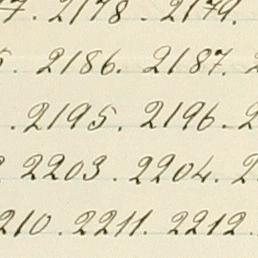 7. 2178. 2179.
5. 2186. 2187. 2
. 2195. 2196. 2
2203. 2204. 2
210. 2211. 2212.